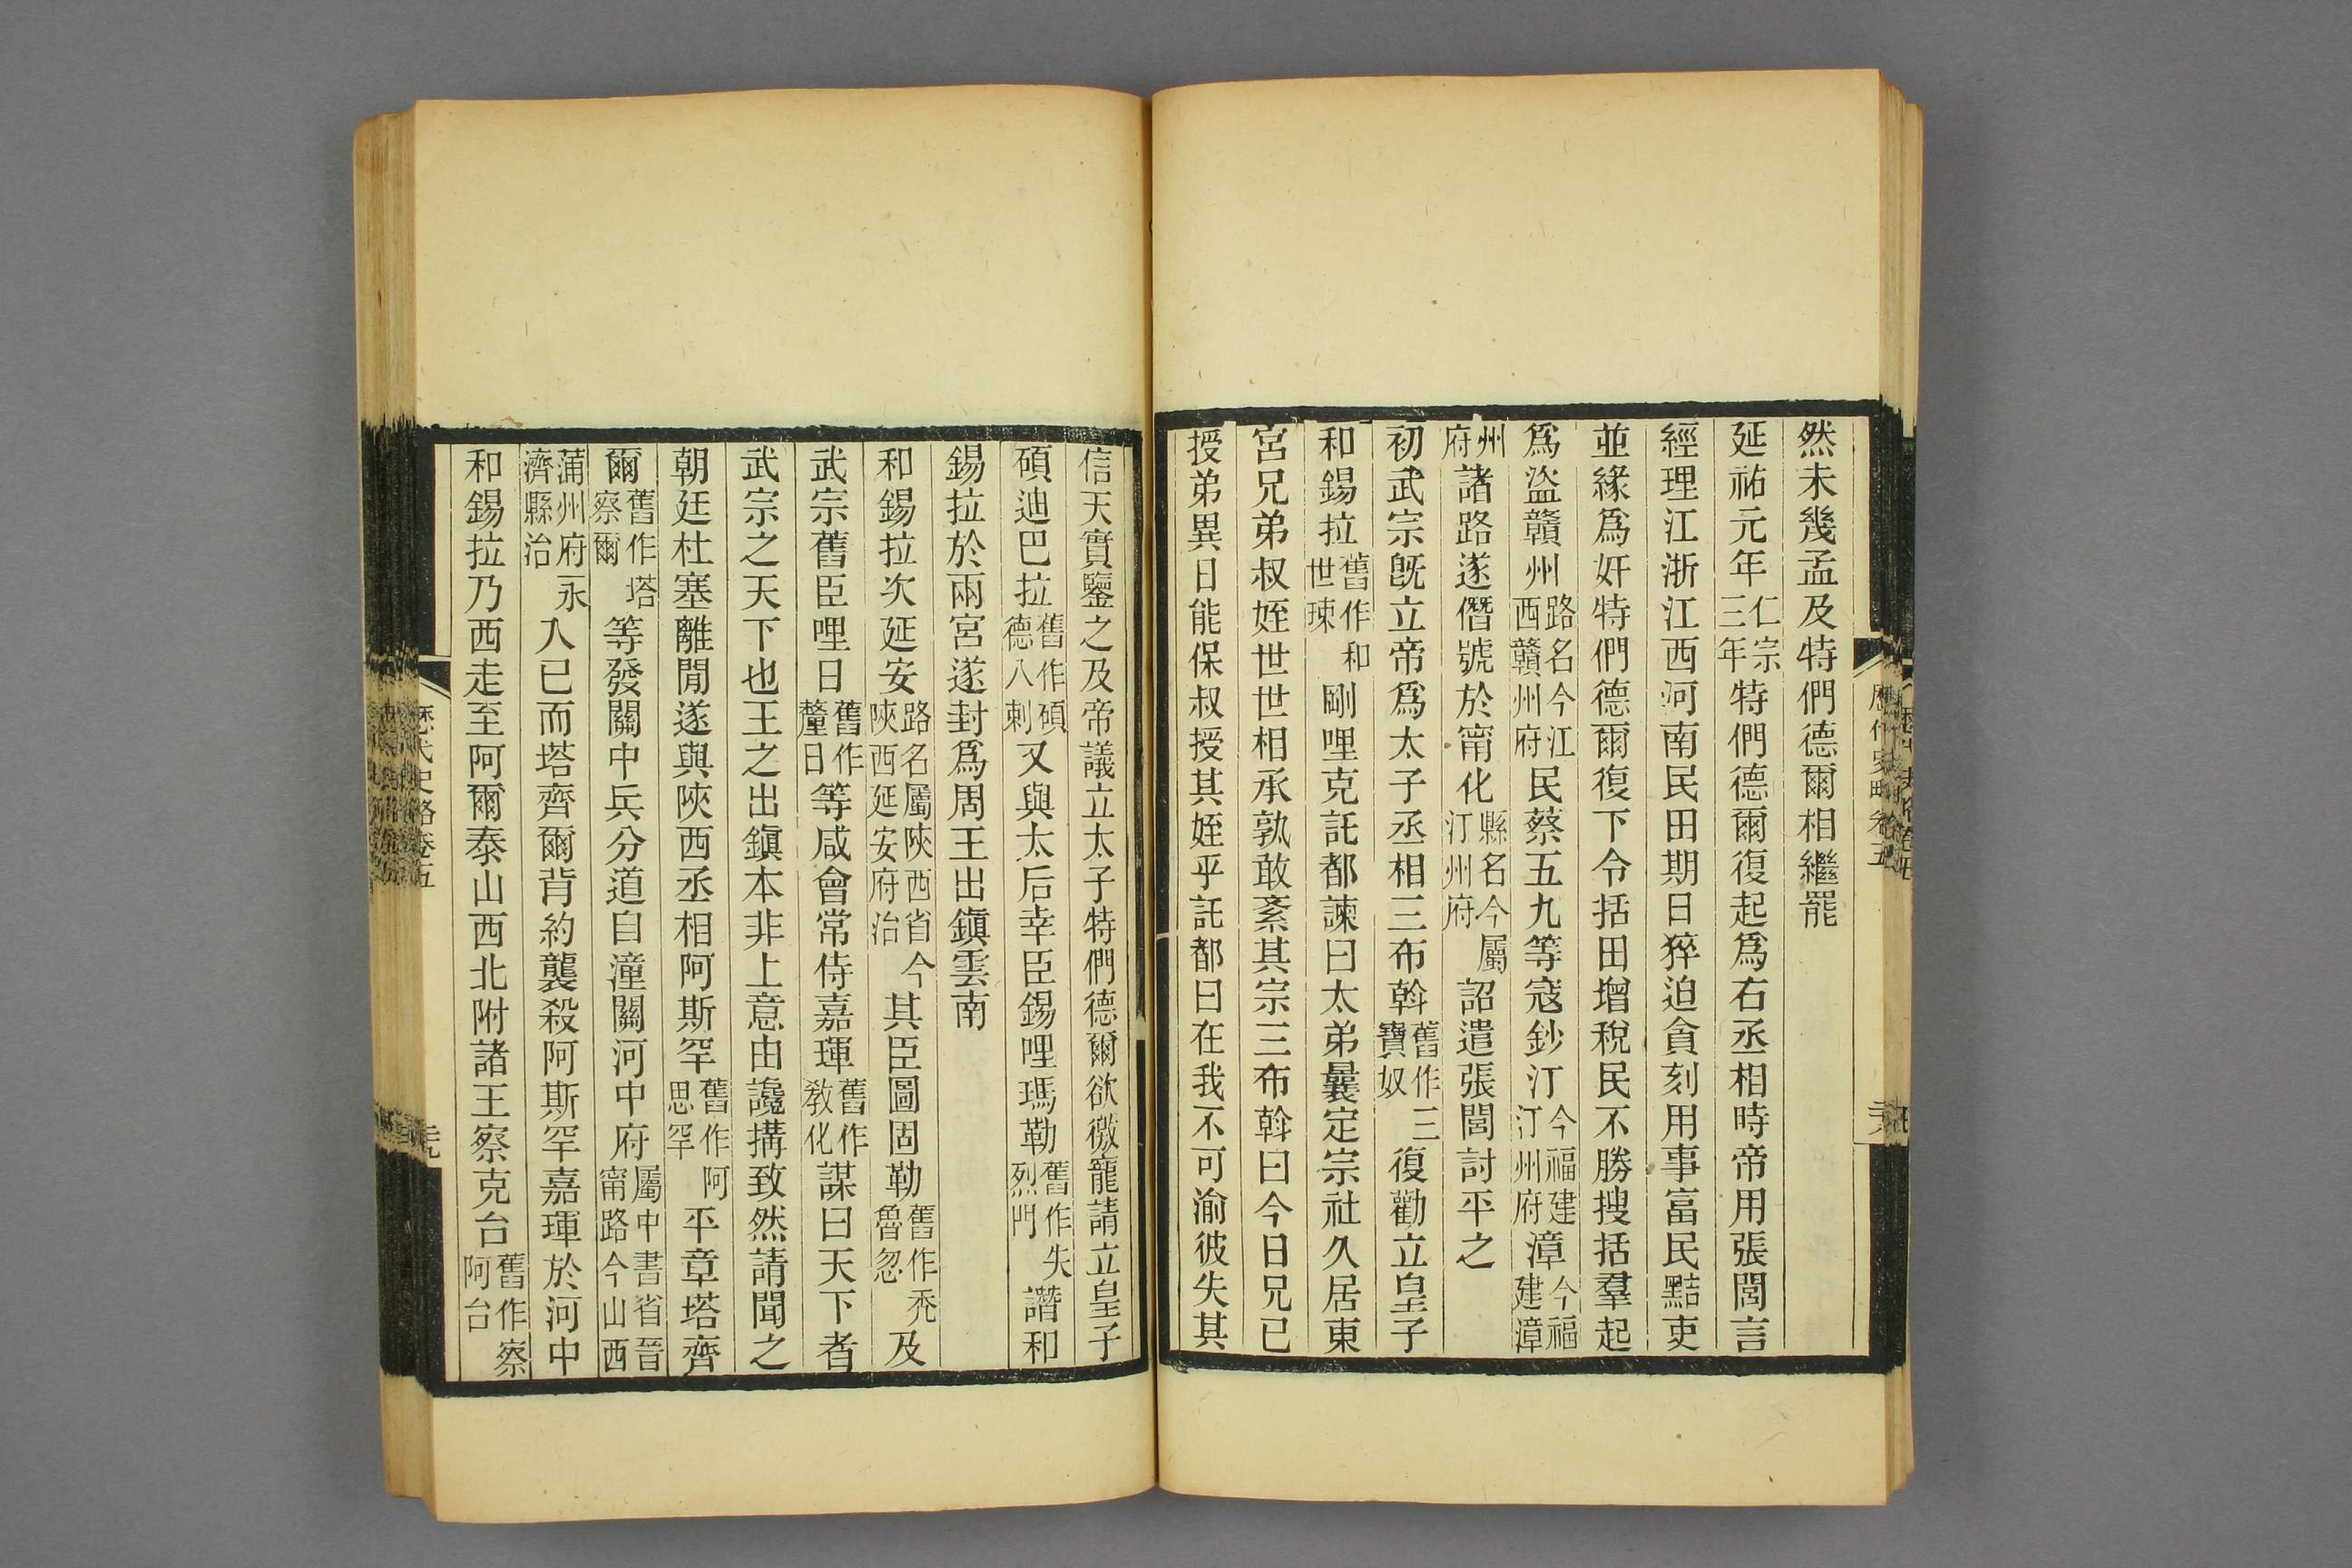 然未幾孟及特們德爾相繼罷
延祐元年仁宗三年特們德爾復起爲右丞相時帝用張閭言
經理江浙江西河南民田期日猝迫貪刻用事富民黠吏
並緣爲奸特們德爾復下令括田增稅民不勝搜括羣起
爲盜贛州路名今江西贛州府民蔡五九等寇鈔汀今福建汀州府漳今福建漳
州府諸路遂僭號於甯化縣名今屬汀州府詔遣張閭討平之
初武宗旣立帝爲太子丞相三布斡舊作三寶奴復勸立皇子
和錫拉舊作和世㻋剛哩克託都諫曰太弟曩定宗社久居東
宮兄弟叔姪世世相承孰敢紊其宗三布斡曰今日兄已
授弟異日能保叔授其姪乎託都曰在我不可渝彼失其
信天實鑒之及帝議立太子特們德爾欲徼寵請立皇子
碩迪巴拉舊作碩德八剌又與太后幸臣錫哩瑪勒舊作失烈門譖和
錫拉於兩宮遂封爲周王出鎭雲南
和錫拉次延安路名屬陝西省今陝西延安府治其臣圖固勒舊作禿魯忽及
武宗舊臣哩日舊作釐日等咸會常侍嘉琿舊作敎化謀曰天下者
武宗之天下也王之出鎭本非上意由讒搆致然請聞之
朝廷杜塞離閒遂與陝西丞相阿斯罕舊作阿思罕平章塔齊
爾舊作塔察爾等發關中兵分道自潼關河中府屬中書省晉甯路今山西
蒲州府永濟縣治入已而塔齊爾背約襲殺阿斯罕嘉琿於河中
和錫拉乃西走至阿爾泰山西北附諸王察克台舊作察阿台
歷代史略卷五